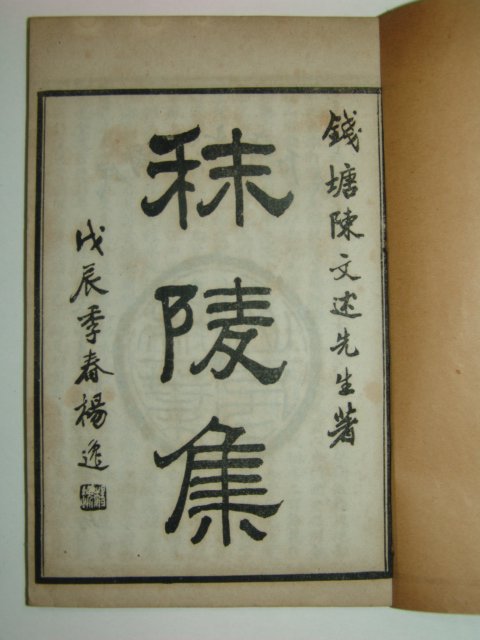 錢塘陳文述先生著
秣陵集
戊辰季春楊逸